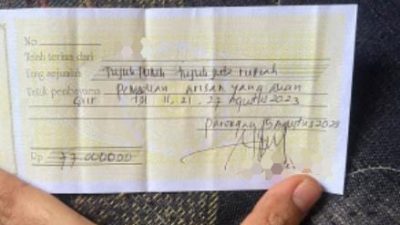 No
Telah terima dari
Uang sejumlah Tujuh Puluh tujuh juta rupiah
Untuk pembayaran Pembelian Arisan yang akan
Cair tgl 11, 21, 27 Agustus 2023
15 Agustus 2023
Rp 77.000000